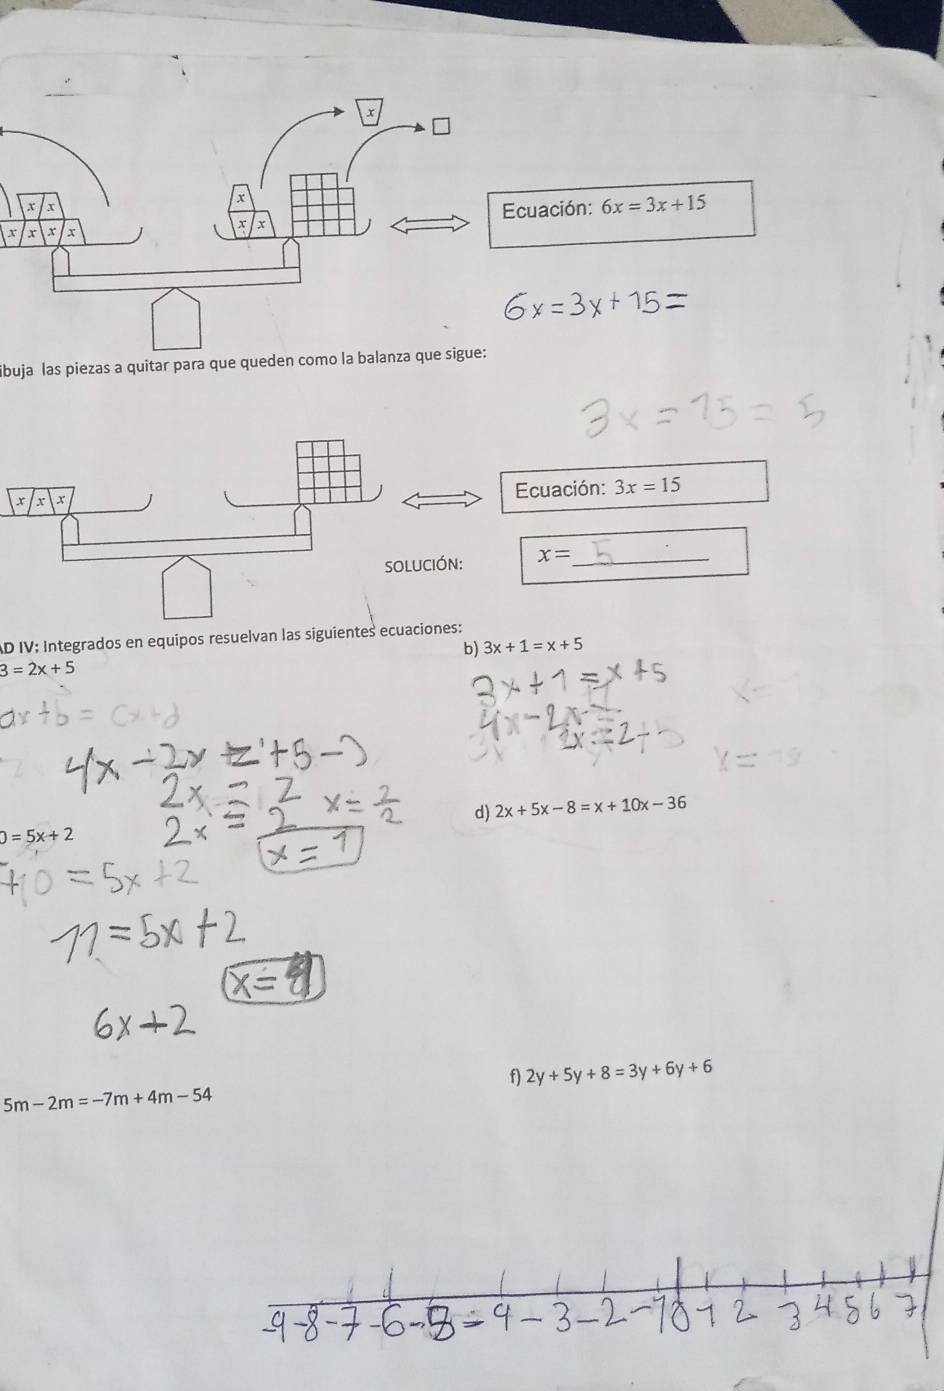 x
x x
x x x x
x
x x
Ecuación: 6x = 3x + 15
6x = 3x + 15 =
ibuja las piezas a quitar para que queden como la balanza que sigue:
3x = 15 = 5
x x x
Ecuación: 3x = 15
SOLUCIÓN:
x = 5
AD IV: Integrados en equipos resuelvan las siguientes ecuaciones:
3 = 2x + 5
b) 3x + 1 = x + 5
ax + b = cx + d
3x + 1 = x + 5
4x - 2x
2x = 2 + 5
2x = 2
x = 2/2
2x = 2
x = 1
d) 2x + 5x - 8 = x + 10x - 36
0 = 5x + 2
+10 = 5x + 2
11 = 5x + 2
x =
6x + 2
5m - 2m = -7m + 4m - 54
f) 2y + 5y + 8 = 3y + 6y + 6
-9 -8 -7 -6 -5 -4 -3 -2 -1 0 1 2 3 4 5 6 7